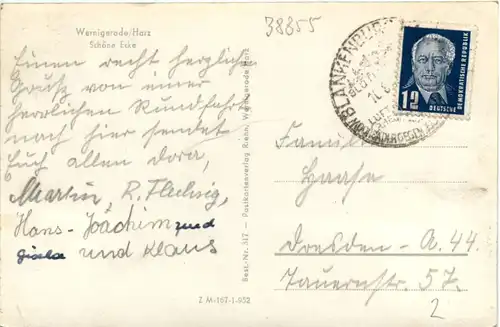 Wernigerode/Harz
Schöne Ecke
38355
Einen recht herzlichen
Gruß von einer
herrlichen Rundfahrt
nach hier sendet
Euch allen Dora,
Martin, R. Flechsig,
Hans-Joachim und
Gisela und Klaus
Best.-Nr. 317 - Postkartenverlag Riehn, Wernigerode/Harz
Z M-167-1-952
BLANKENBURG
12
DEUTSCHE
DEMOKRATISCHE REPUBLIK
Familie
Haase
Dresden - A. 44
Tauernstr. 57.
2